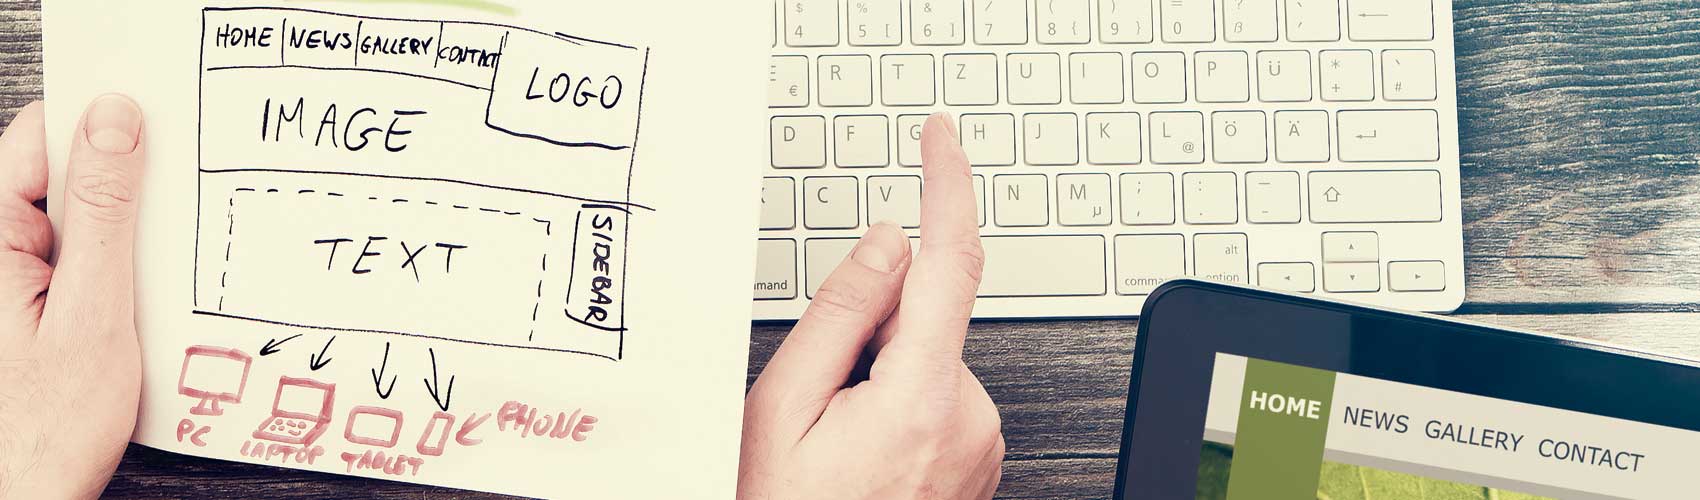 HOME NEWS GALLERY CONTACT
LOGO
IMAGE
TEXT
SIDEBAR
PC
LAPTOP
TABLET
PHONE
$ % & / ( ) = ? `
4 5 [ 6 ] 7 8 { 9 } 0 ß ´
E € R T Z U I O P Ü * + ` #
D F G H J K L @ Ö Ä
C V N M µ ; , : . _ -
mand comma alt option
HOME NEWS GALLERY CONTACT